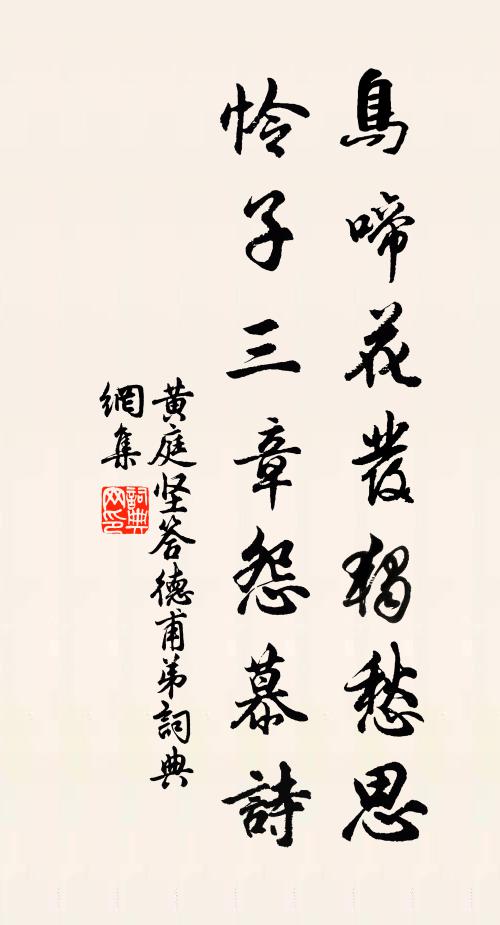 鳥啼花發獨愁思
怜子三章怨慕詩
黄庭坚答德甫弟詞典
網集
詞典网印